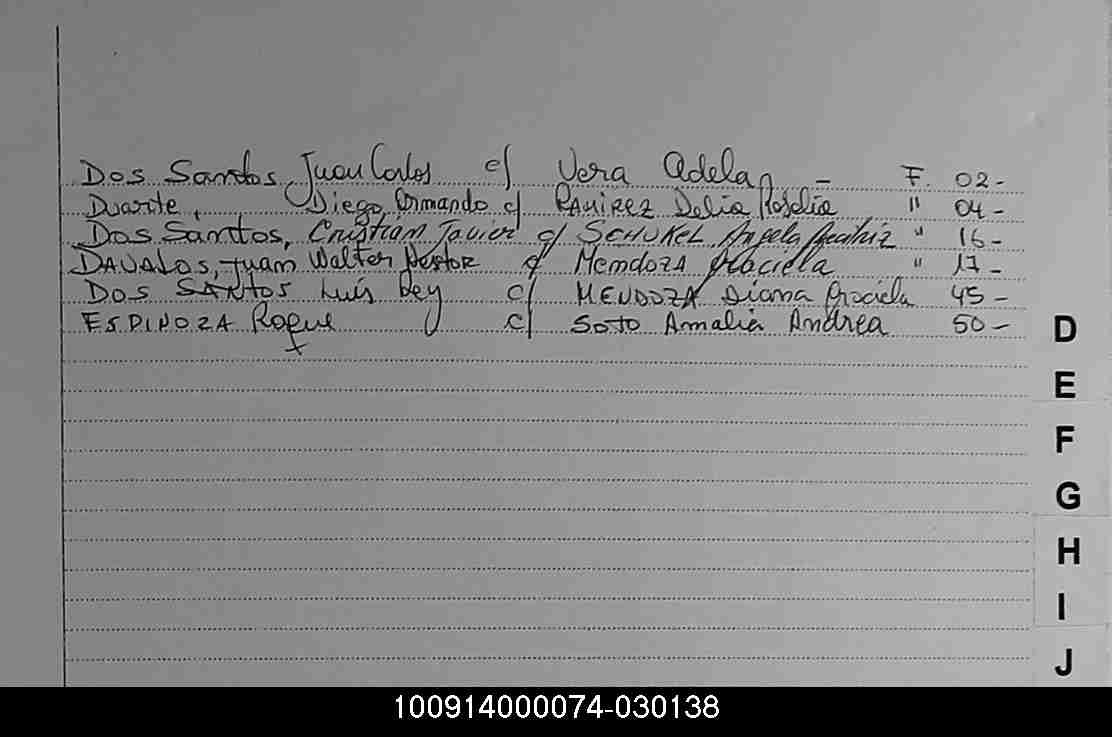 Dos Santos Juan Carlos c/ Vera Adela - F. 02-
Duarte, Diego Armando c/ RAMIREZ Delia Roselia " 04-
Dos Santos, Cristian Javier c/ SCHUKEL, Angela Beatriz " 16-
DAVALOS, Juan Walter Nestor c/ MENDOZA Graciela " 17-
Dos SANTOS Luis Rey c/ MENDOZA Diana Graciela 45-
ESPINOZA Roque c/ SOTO Amalia Andrea 50-
D
E
F
G
H
I
J
100914000074-030138